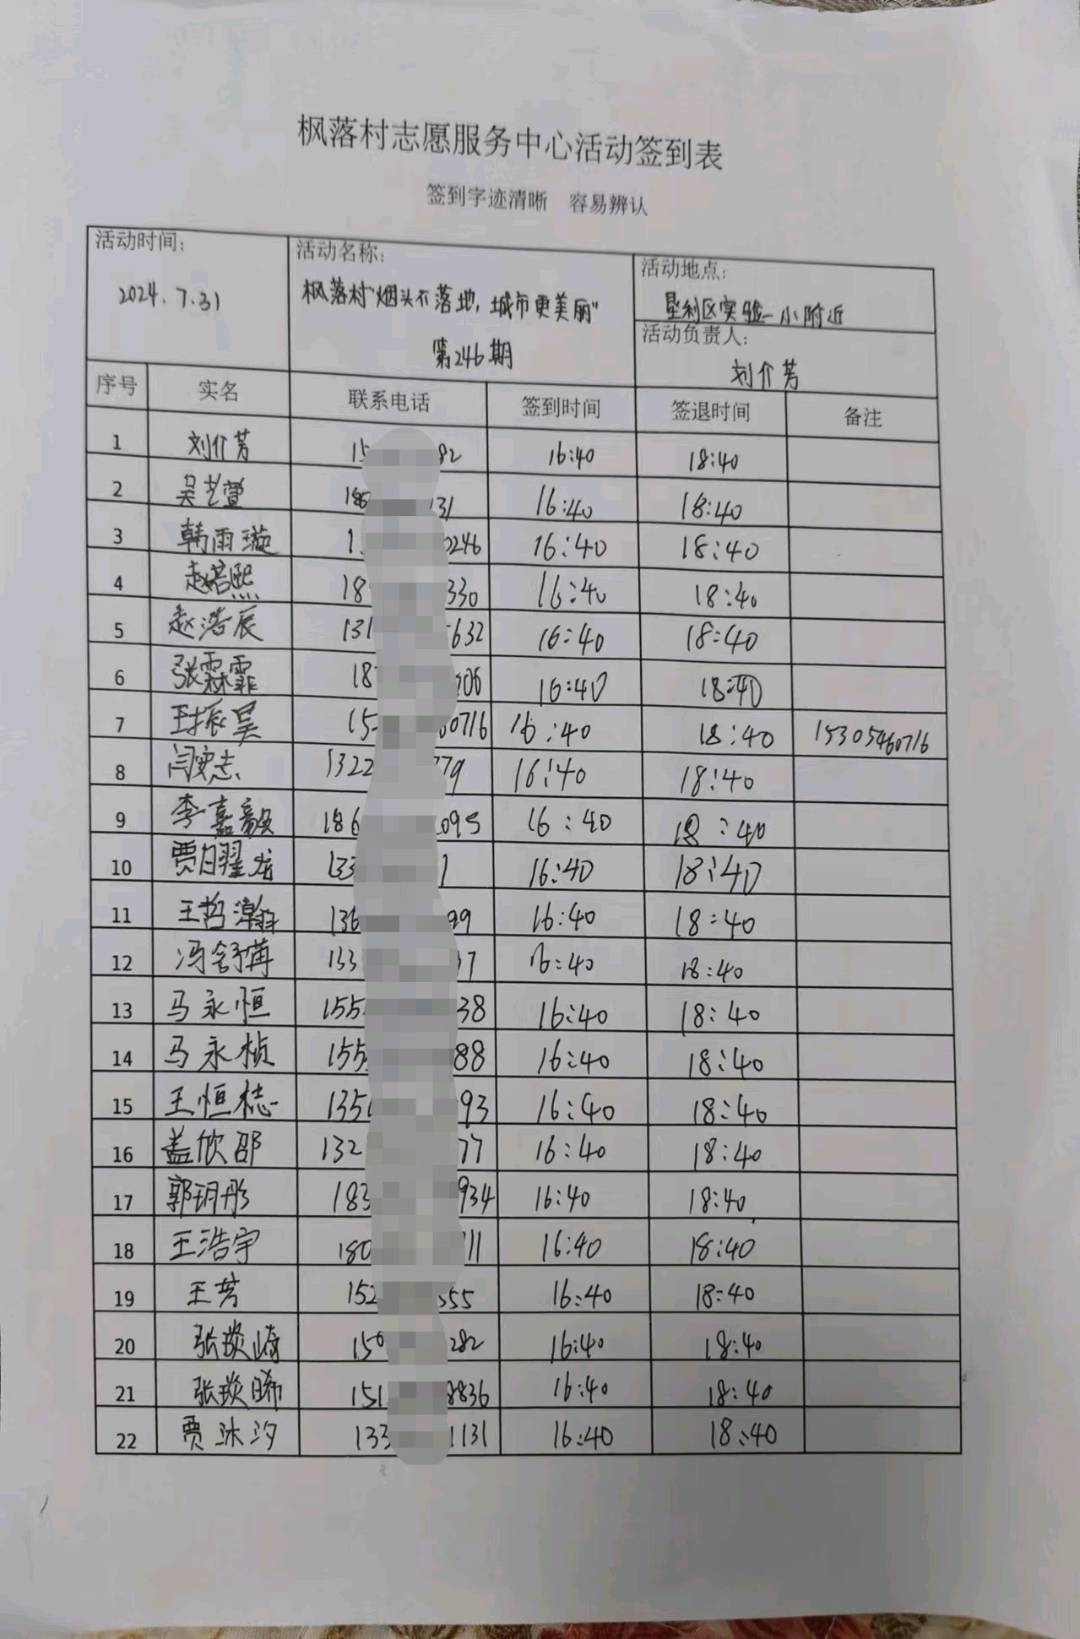 枫落村志愿服务中心活动签到表
签到字迹清晰 容易辨认
活动时间: 2024.7.31
活动名称: 枫落村"烟头不落地,城市更美丽" 第246期
活动地点: 垦利区实验一小附近
活动负责人: 刘介芳
序号 实名 联系电话 签到时间 签退时间 备注
1 刘介芳 15 82 16:40 18:40
2 吴艺萱 186 131 16:40 18:40
3 韩雨璇 1 0246 16:40 18:40
4 赵若熙 18 330 16:40 18:40
5 赵浩辰 131 5632 16:40 18:40
6 张霖霏 18 906 16:40 18:40
7 王振昊 15 60716 16:40 18:40 15305460716
8 闫奕志 1322 779 16:40 18:40
9 李嘉毅 186 2095 16:40 18:40
10 贾翟龙 133 1 16:40 18:40
11 王哲瀚 136 99 16:40 18:40
12 冯舒 133 37 16:40 18:40
13 马永恒 155 38 16:40 18:40
14 马永桢 155 88 16:40 18:40
15 王恒 135 93 16:40 18:40
16 盖欣邵 132 77 16:40 18:40
17 郭玥彤 183 934 16:40 18:40
18 王浩宇 180 111 16:40 18:40
19 王芳 152 555 16:40 18:40
20 张琰崎 150 282 16:40 18:40
21 张琰晞 151 8836 16:40 18:40
22 贾沐汐 133 1131 16:40 18:40